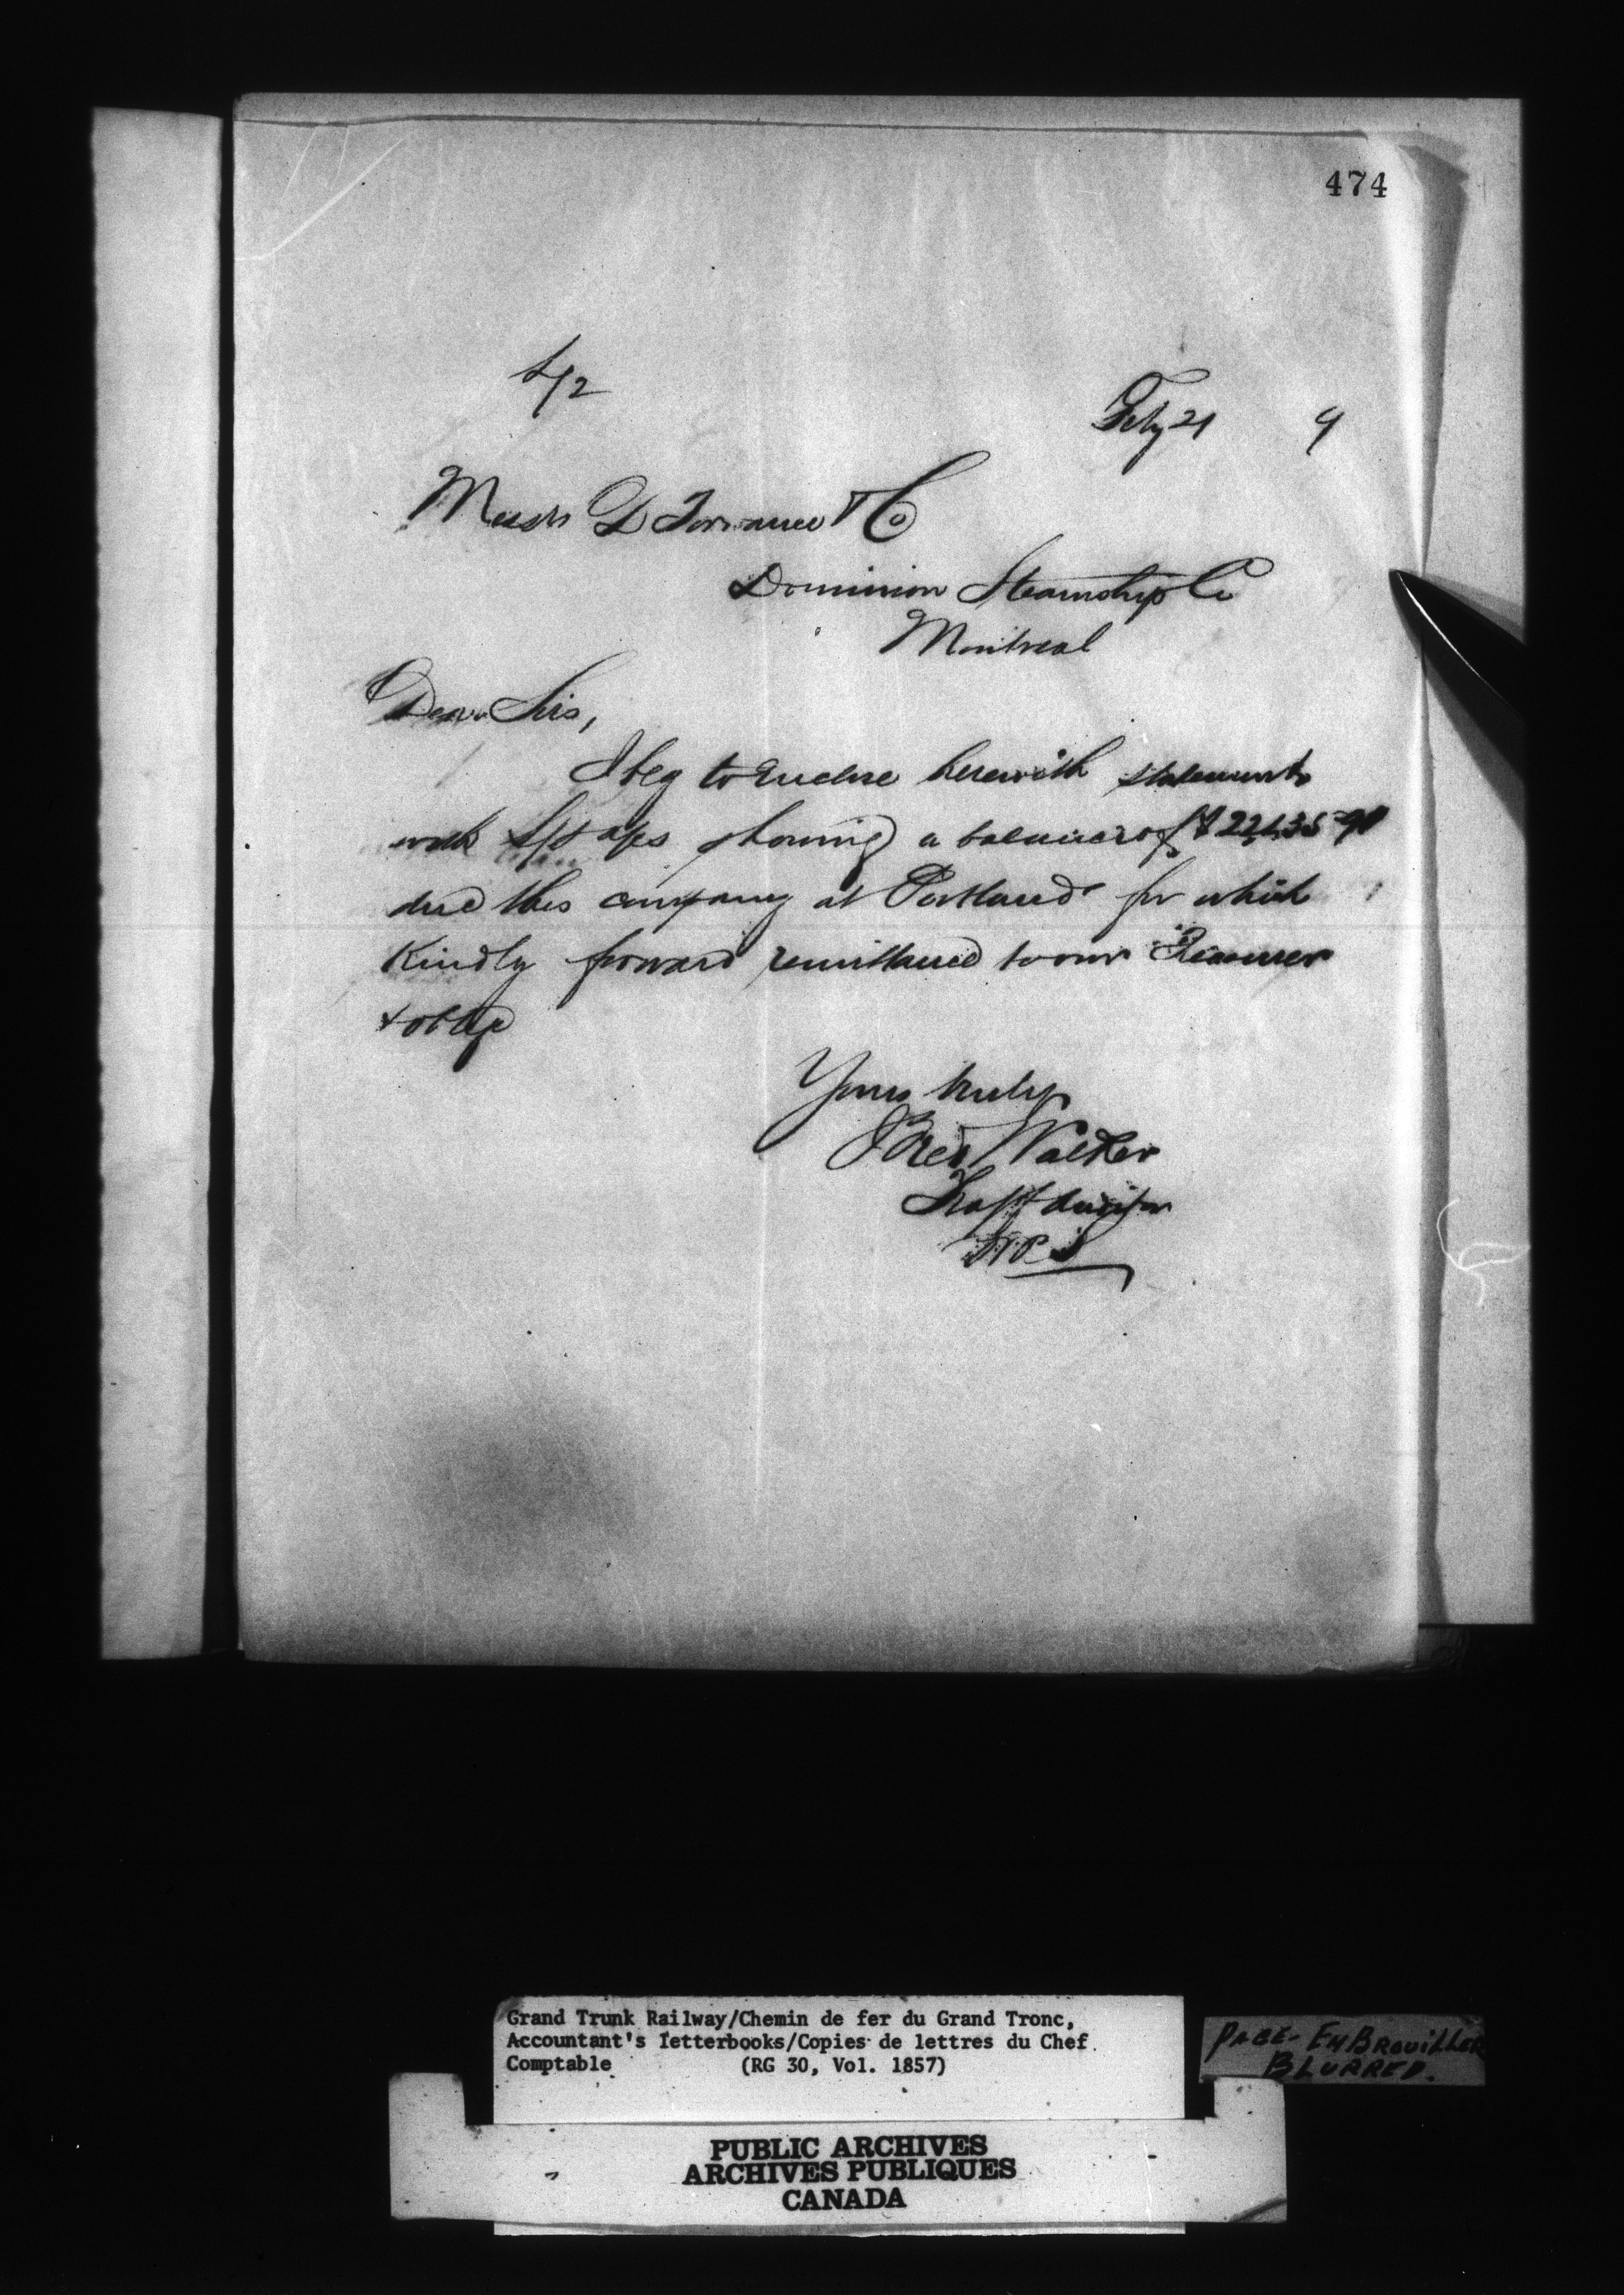 474
Feby 21 9
Messrs D Torrance & Co
Dominion Steamship Co
Montreal
Dear Sirs,
I beg to enclose herewith statements
with showing a balance of $
due this company at Portland for which
Kindly forward remittance to our Treasurer
& oblige
Yours truly
Fred Walker
Traff Auditor
Grand Trunk Railway/Chemin de fer du Grand Tronc,
Accountant's letterbooks/Copies de lettres du Chef
Comptable (RG 30, Vol. 1857)
PAGE - EMBROUILLER
BLURRED.
PUBLIC ARCHIVES
ARCHIVES PUBLIQUES
CANADA